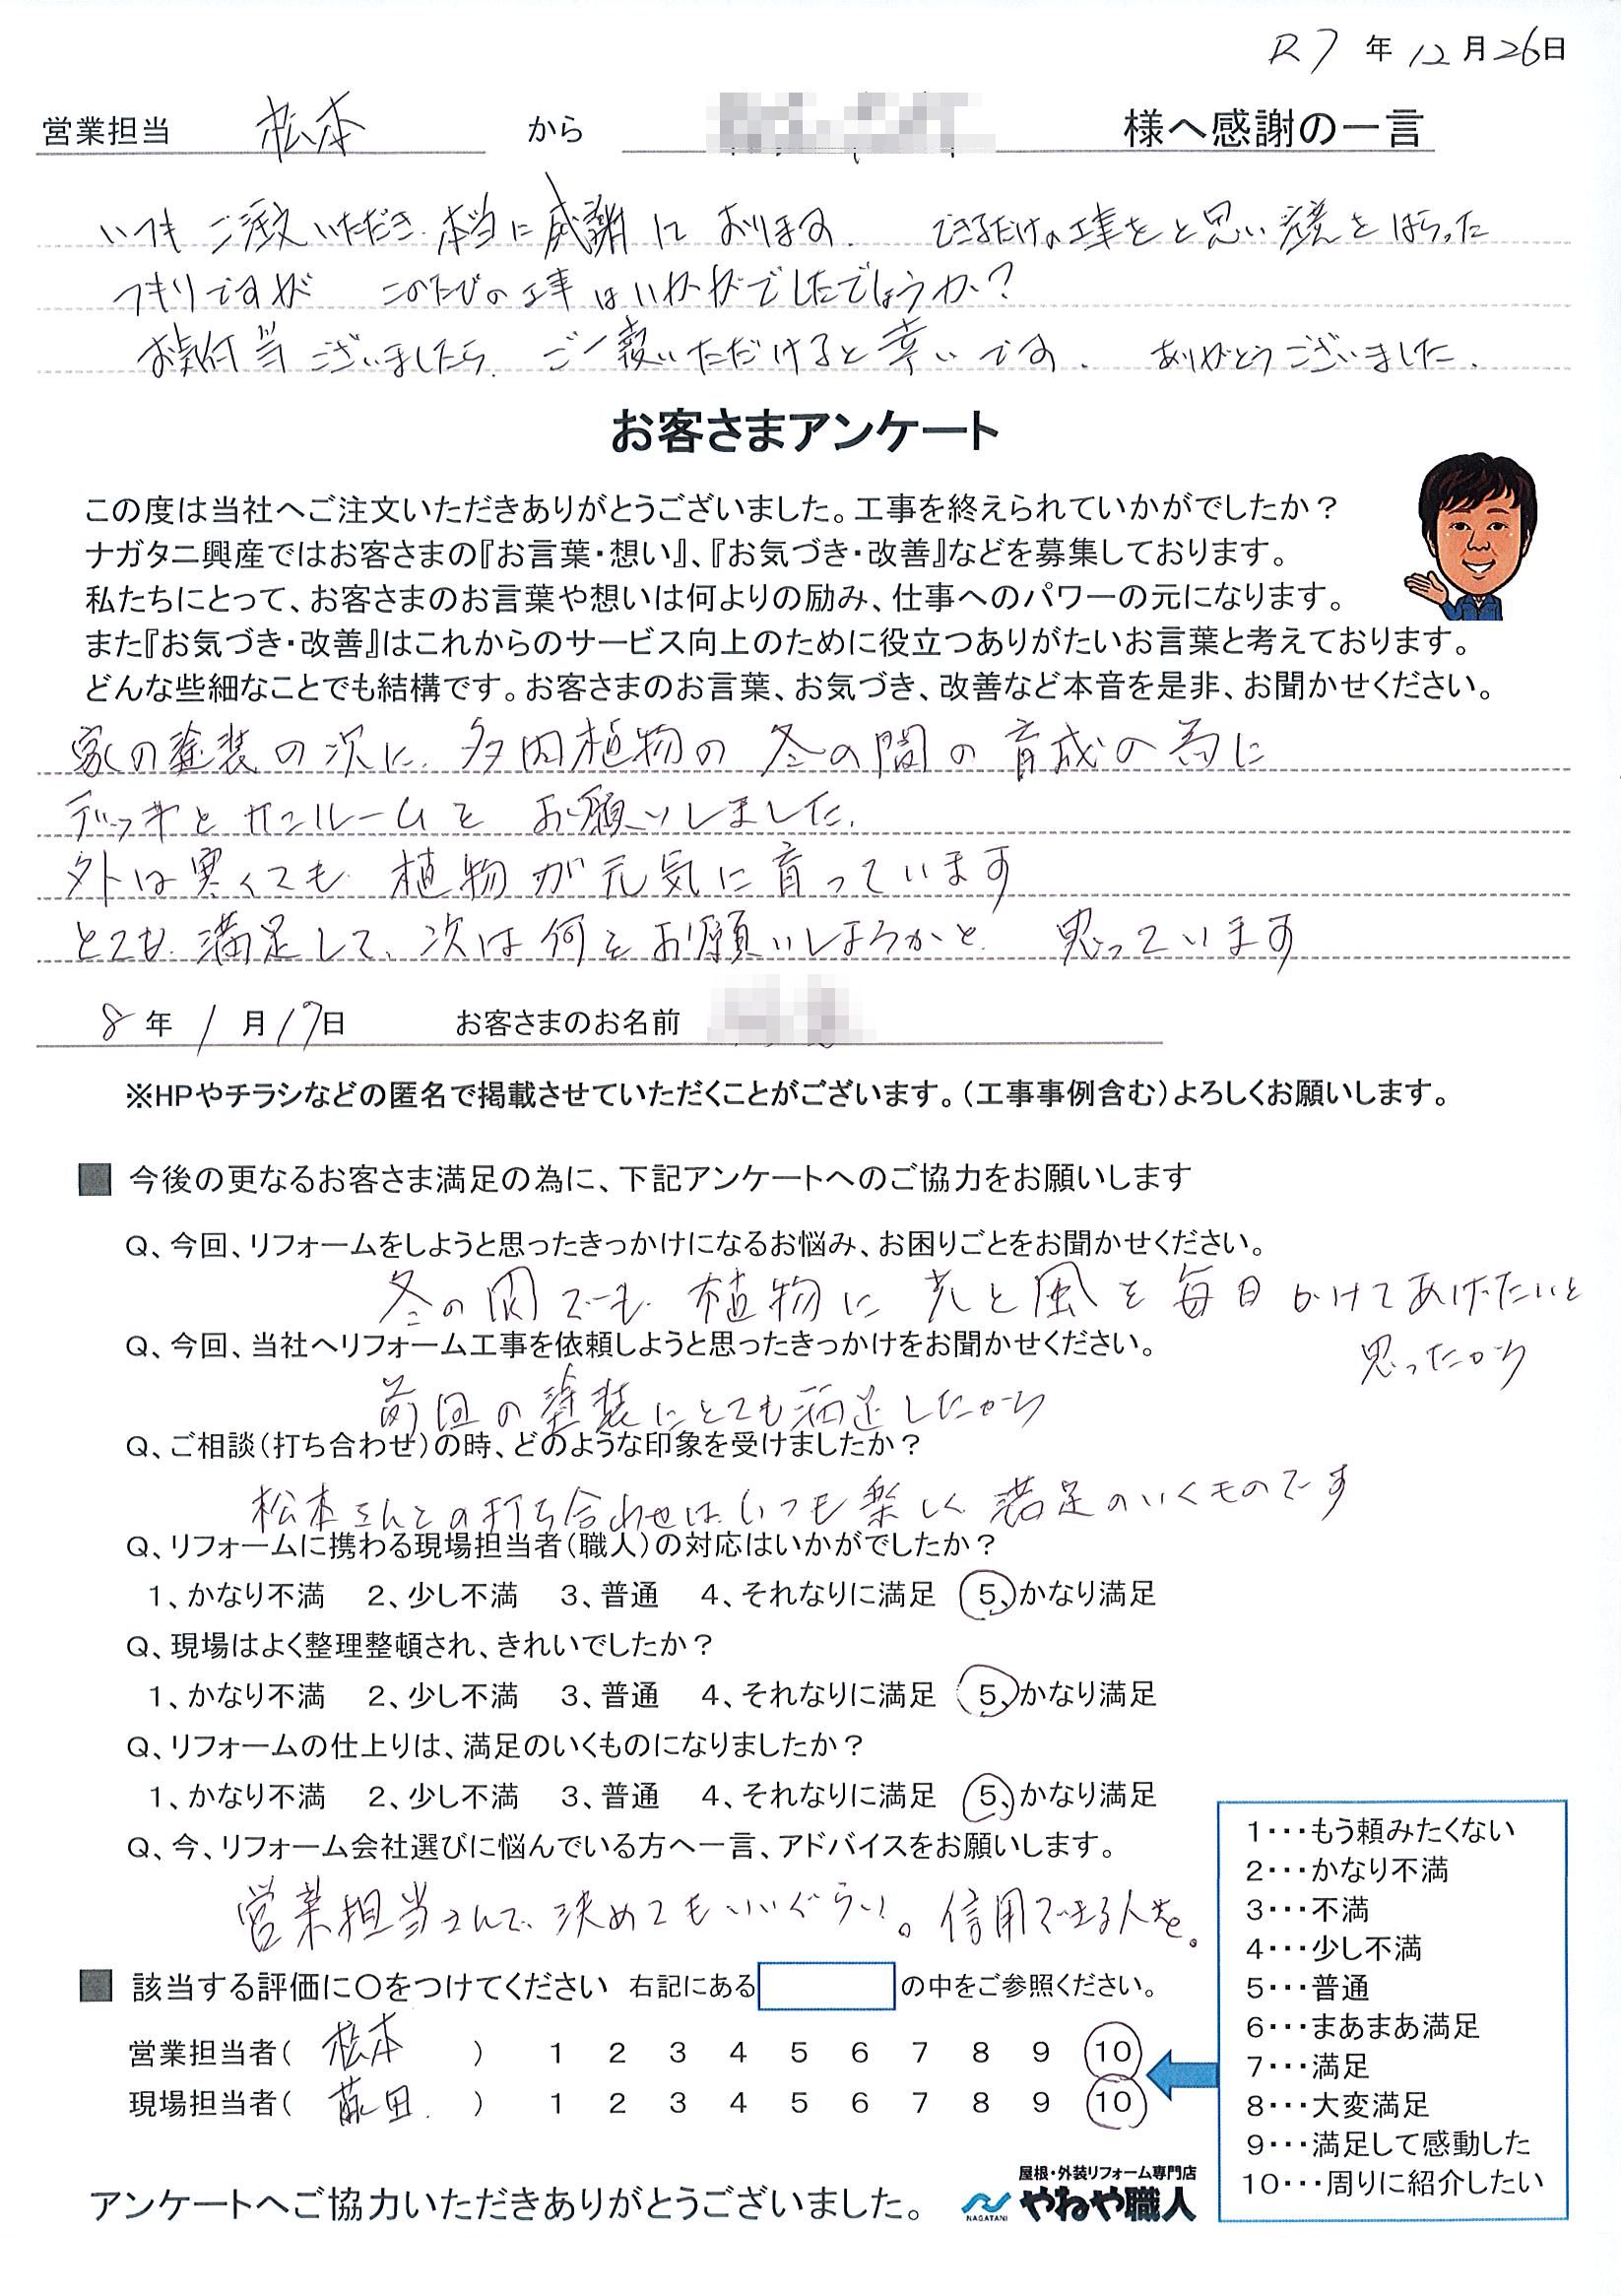 R7年12月26日
営業担当 松本 から 様へ感謝の一言
いつも ご注文いただき、本当に感謝して おります。 できるだけの工事をと思い 注意をはらった
つもりですが このたびの工事はいかがでしたでしょうか？
お気付 ございましたら、ご一報いただけると幸いです。 ありがとうございました。
お客さまアンケート
この度は当社へご注文いただきありがとうございました。工事を終えられていかがでしたか？
ナガタニ興産ではお客さまの『お言葉・想い』、『お気づき・改善』などを募集しております。
私たちにとって、お客さまのお言葉や想いは何よりの励み、仕事へのパワーの元になります。
また『お気づき・改善』はこれからのサービス向上のために役立つありがたいお言葉と考えております。
どんな些細なことでも結構です。お客さまのお言葉、お気づき、改善など本音を是非、お聞かせください。
家の塗装の次に、多肉植物の冬の間の育成の為に
デッキとサンルームを お願いしました。
外は寒くても 植物が元気に育っています
とても満足して、次は何をお願いしようかと 思っています
8年1月17日 お客さまのお名前
※HPやチラシなどの匿名で掲載させていただくことがございます。（工事事例含む）よろしくお願いします。
■ 今後の更なるお客さま満足の為に、下記アンケートへのご協力をお願いします
Q、今回、リフォームをしようと思ったきっかけになるお悩み、お困りごとをお聞かせください。
冬の間でも 植物に 光と風を毎日かけてあげたいと
思ったから
Q、今回、当社へリフォーム工事を依頼しようと思ったきっかけをお聞かせください。
前回の塗装にとても満足したから
Q、ご相談（打ち合わせ）の時、どのような印象を受けましたか？
松本さんとの打ち合わせは、いつも楽しく満足のいくものです
Q、リフォームに携わる現場担当者（職人）の対応はいかがでしたか？
1、かなり不満 2、少し不満 3、普通 4、それなりに満足 5、かなり満足
Q、現場はよく整理整頓され、きれいでしたか？
1、かなり不満 2、少し不満 3、普通 4、それなりに満足 5、かなり満足
Q、リフォームの仕上りは、満足のいくものになりましたか？
1、かなり不満 2、少し不満 3、普通 4、それなりに満足 5、かなり満足
Q、今、リフォーム会社選びに悩んでいる方へ一言、アドバイスをお願いします。
営業担当さんで、決めてもいいぐらい。信用できる人を。
■ 該当する評価に〇をつけてください 右記にある の中をご参照ください。
営業担当者（ 松本 ） 1 2 3 4 5 6 7 8 9 10
現場担当者（ 藤田 ） 1 2 3 4 5 6 7 8 9 10
1・・・もう頼みたくない
2・・・かなり不満
3・・・不満
4・・・少し不満
5・・・普通
6・・・まあまあ満足
7・・・満足
8・・・大変満足
9・・・満足して感動した
10・・・周りに紹介したい
アンケートへご協力いただきありがとうございました。
NAGATANI
屋根・外装リフォーム専門店
やねや職人